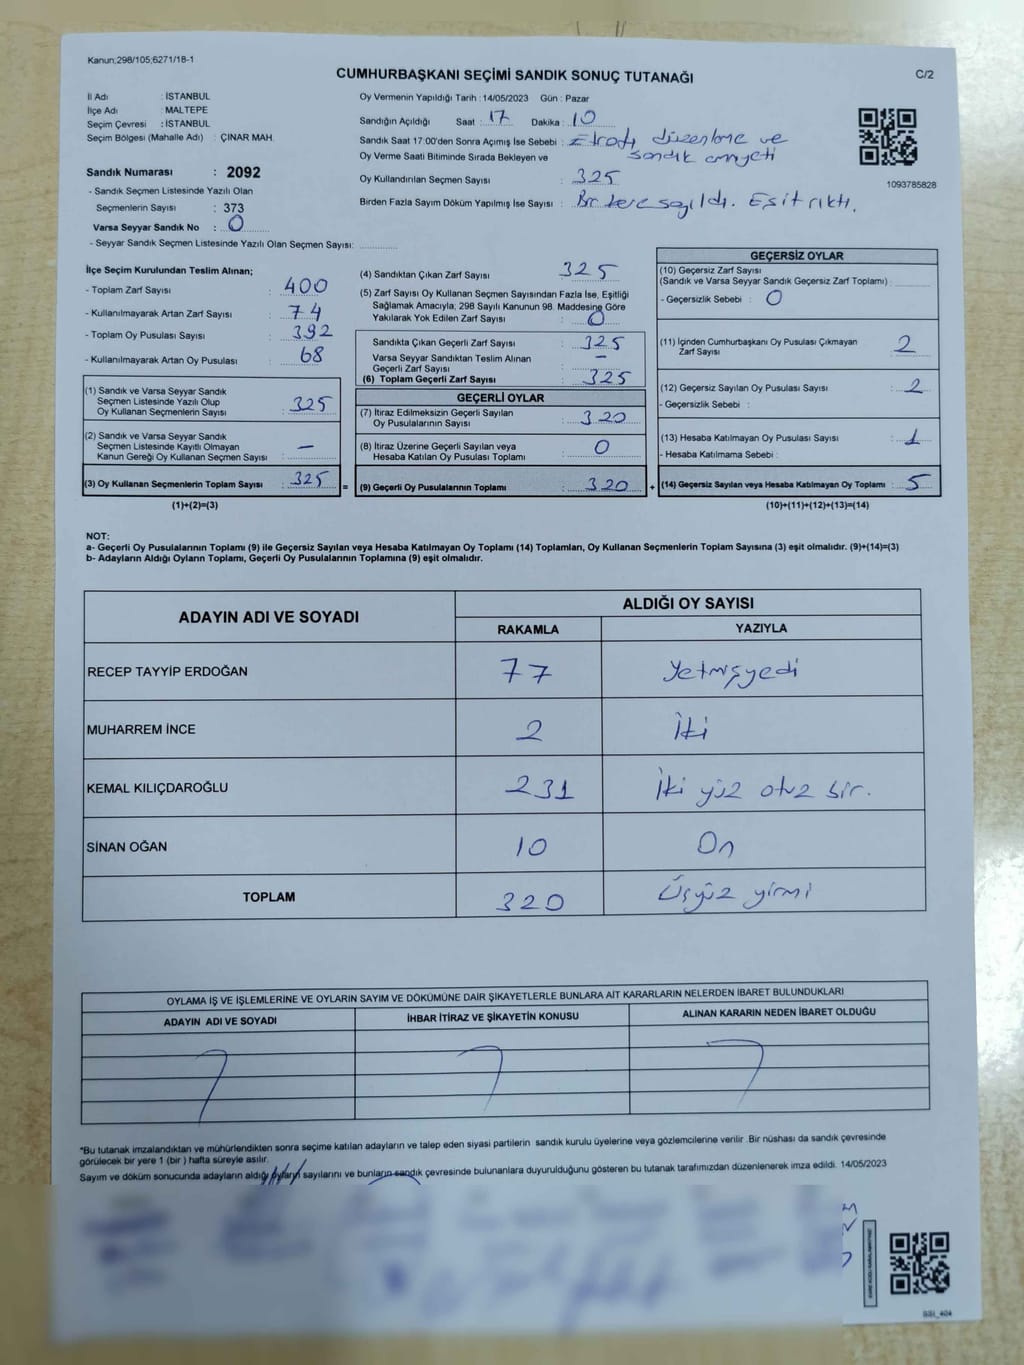 Kanun;298/105;6271/18-1
CUMHURBAŞKANI SEÇİMİ SANDIK SONUÇ TUTANAĞI
C/2
İl Adı : İSTANBUL
İlçe Adı : MALTEPE
Seçim Çevresi : İSTANBUL
Seçim Bölgesi (Mahalle Adı) : ÇINAR MAH.
Sandık Numarası : 2092
- Sandık Seçmen Listesinde Yazılı Olan
Seçmenlerin Sayısı : 373
Varsa Seyyar Sandık No : 0
- Seyyar Sandık Seçmen Listesinde Yazılı Olan Seçmen Sayısı:
Oy Vermenin Yapıldığı Tarih : 14/05/2023 Gün : Pazar
Sandığın Açıldığı Saat : 17 Dakika : 10
Sandık Saat 17:00'den Sonra Açımış İse Sebebi : düzenleme ve
Oy Verme Saati Bitiminde Sırada Bekleyen ve sandık emniyeti
Oy Kullandırılan Seçmen Sayısı : 325
Birden Fazla Sayım Döküm Yapılmış İse Sayısı : Bir kere sayıldı. Eşit çıktı.
1093785828
İlçe Seçim Kurulundan Teslim Alınan;
- Toplam Zarf Sayısı : 400
- Kullanılmayarak Artan Zarf Sayısı : 74
- Toplam Oy Pusulası Sayısı : 392
- Kullanılmayarak Artan Oy Pusulası : 68
(1) Sandık ve Varsa Seyyar Sandık
Seçmen Listesinde Yazılı Olup
Oy Kullanan Seçmenlerin Sayısı : 325
(2) Sandık ve Varsa Seyyar Sandık
Seçmen Listesinde Kayıtlı Olmayan
Kanun Gereği Oy Kullanan Seçmen Sayısı : —
(3) Oy Kullanan Seçmenlerin Toplam Sayısı : 325 =
(1)+(2)=(3)
(4) Sandıktan Çıkan Zarf Sayısı : 325
(5) Zarf Sayısı Oy Kullanan Seçmen Sayısından Fazla İse, Eşitliği
Sağlamak Amacıyla; 298 Sayılı Kanunun 98. Maddesine Göre
Yakılarak Yok Edilen Zarf Sayısı : 0
Sandıkta Çıkan Geçerli Zarf Sayısı : 325
Varsa Seyyar Sandıktan Teslim Alınan
Geçerli Zarf Sayısı : —
(6) Toplam Geçerli Zarf Sayısı : 325
GEÇERLİ OYLAR
(7) İtiraz Edilmeksizin Geçerli Sayılan
Oy Pusulalarının Sayısı : 320
(8) İtiraz Üzerine Geçerli Sayılan veya
Hesaba Katılan Oy Pusulası Toplamı : 0
(9) Geçerli Oy Pusulalarının Toplamı : 320 +
GEÇERSİZ OYLAR
(10) Geçersiz Zarf Sayısı
(Sandık ve Varsa Seyyar Sandık Geçersiz Zarf Toplamı) :
- Geçersizlik Sebebi : 0
(11) İçinden Cumhurbaşkanı Oy Pusulası Çıkmayan
Zarf Sayısı : 2
(12) Geçersiz Sayılan Oy Pusulası Sayısı : 2
- Geçersizlik Sebebi :
(13) Hesaba Katılmayan Oy Pusulası Sayısı : 1
- Hesaba Katılmama Sebebi :
(14) Geçersiz Sayılan veya Hesaba Katılmayan Oy Toplamı : 5
(10)+(11)+(12)+(13)=(14)
NOT:
a- Geçerli Oy Pusulalarının Toplamı (9) ile Geçersiz Sayılan veya Hesaba Katılmayan Oy Toplamı (14) Toplamları, Oy Kullanan Seçmenlerin Toplam Sayısına (3) eşit olmalıdır. (9)+(14)=(3)
b- Adayların Aldığı Oyların Toplamı, Geçerli Oy Pusulalarının Toplamına (9) eşit olmalıdır.
ADAYIN ADI VE SOYADI
ALDIĞI OY SAYISI
RAKAMLA YAZIYLA
RECEP TAYYİP ERDOĞAN 77 Yetmişyedi
MUHARREM İNCE 2 İki
KEMAL KILIÇDAROĞLU 231 İki yüz otuz bir.
SİNAN OĞAN 10 On
TOPLAM 320 Üçyüz yirmi
OYLAMA İŞ VE İŞLEMLERİNE VE OYLARIN SAYIM VE DÖKÜMÜNE DAİR ŞİKAYETLERLE BUNLARA AİT KARARLARIN NELERDEN İBARET BULUNDUKLARI
ADAYIN ADI VE SOYADI İHBAR İTİRAZ VE ŞİKAYETİN KONUSU ALINAN KARARIN NEDEN İBARET OLDUĞU
*Bu tutanak imzalandıktan ve mühürlendikten sonra seçime katılan adayların ve talep eden siyasi partilerin sandık kurulu üyelerine veya gözlemcilerine verilir .Bir nüshası da sandık çevresinde
görülecek bir yere 1 (bir ) hafta süreyle asılır.
Sayım ve döküm sonucunda adayların aldığı oyların sayılarını ve bunların sandık çevresinde bulunanlara duyurulduğunu gösteren bu tutanak tarafımızdan düzenlenerek imza edildi. 14/05/2023